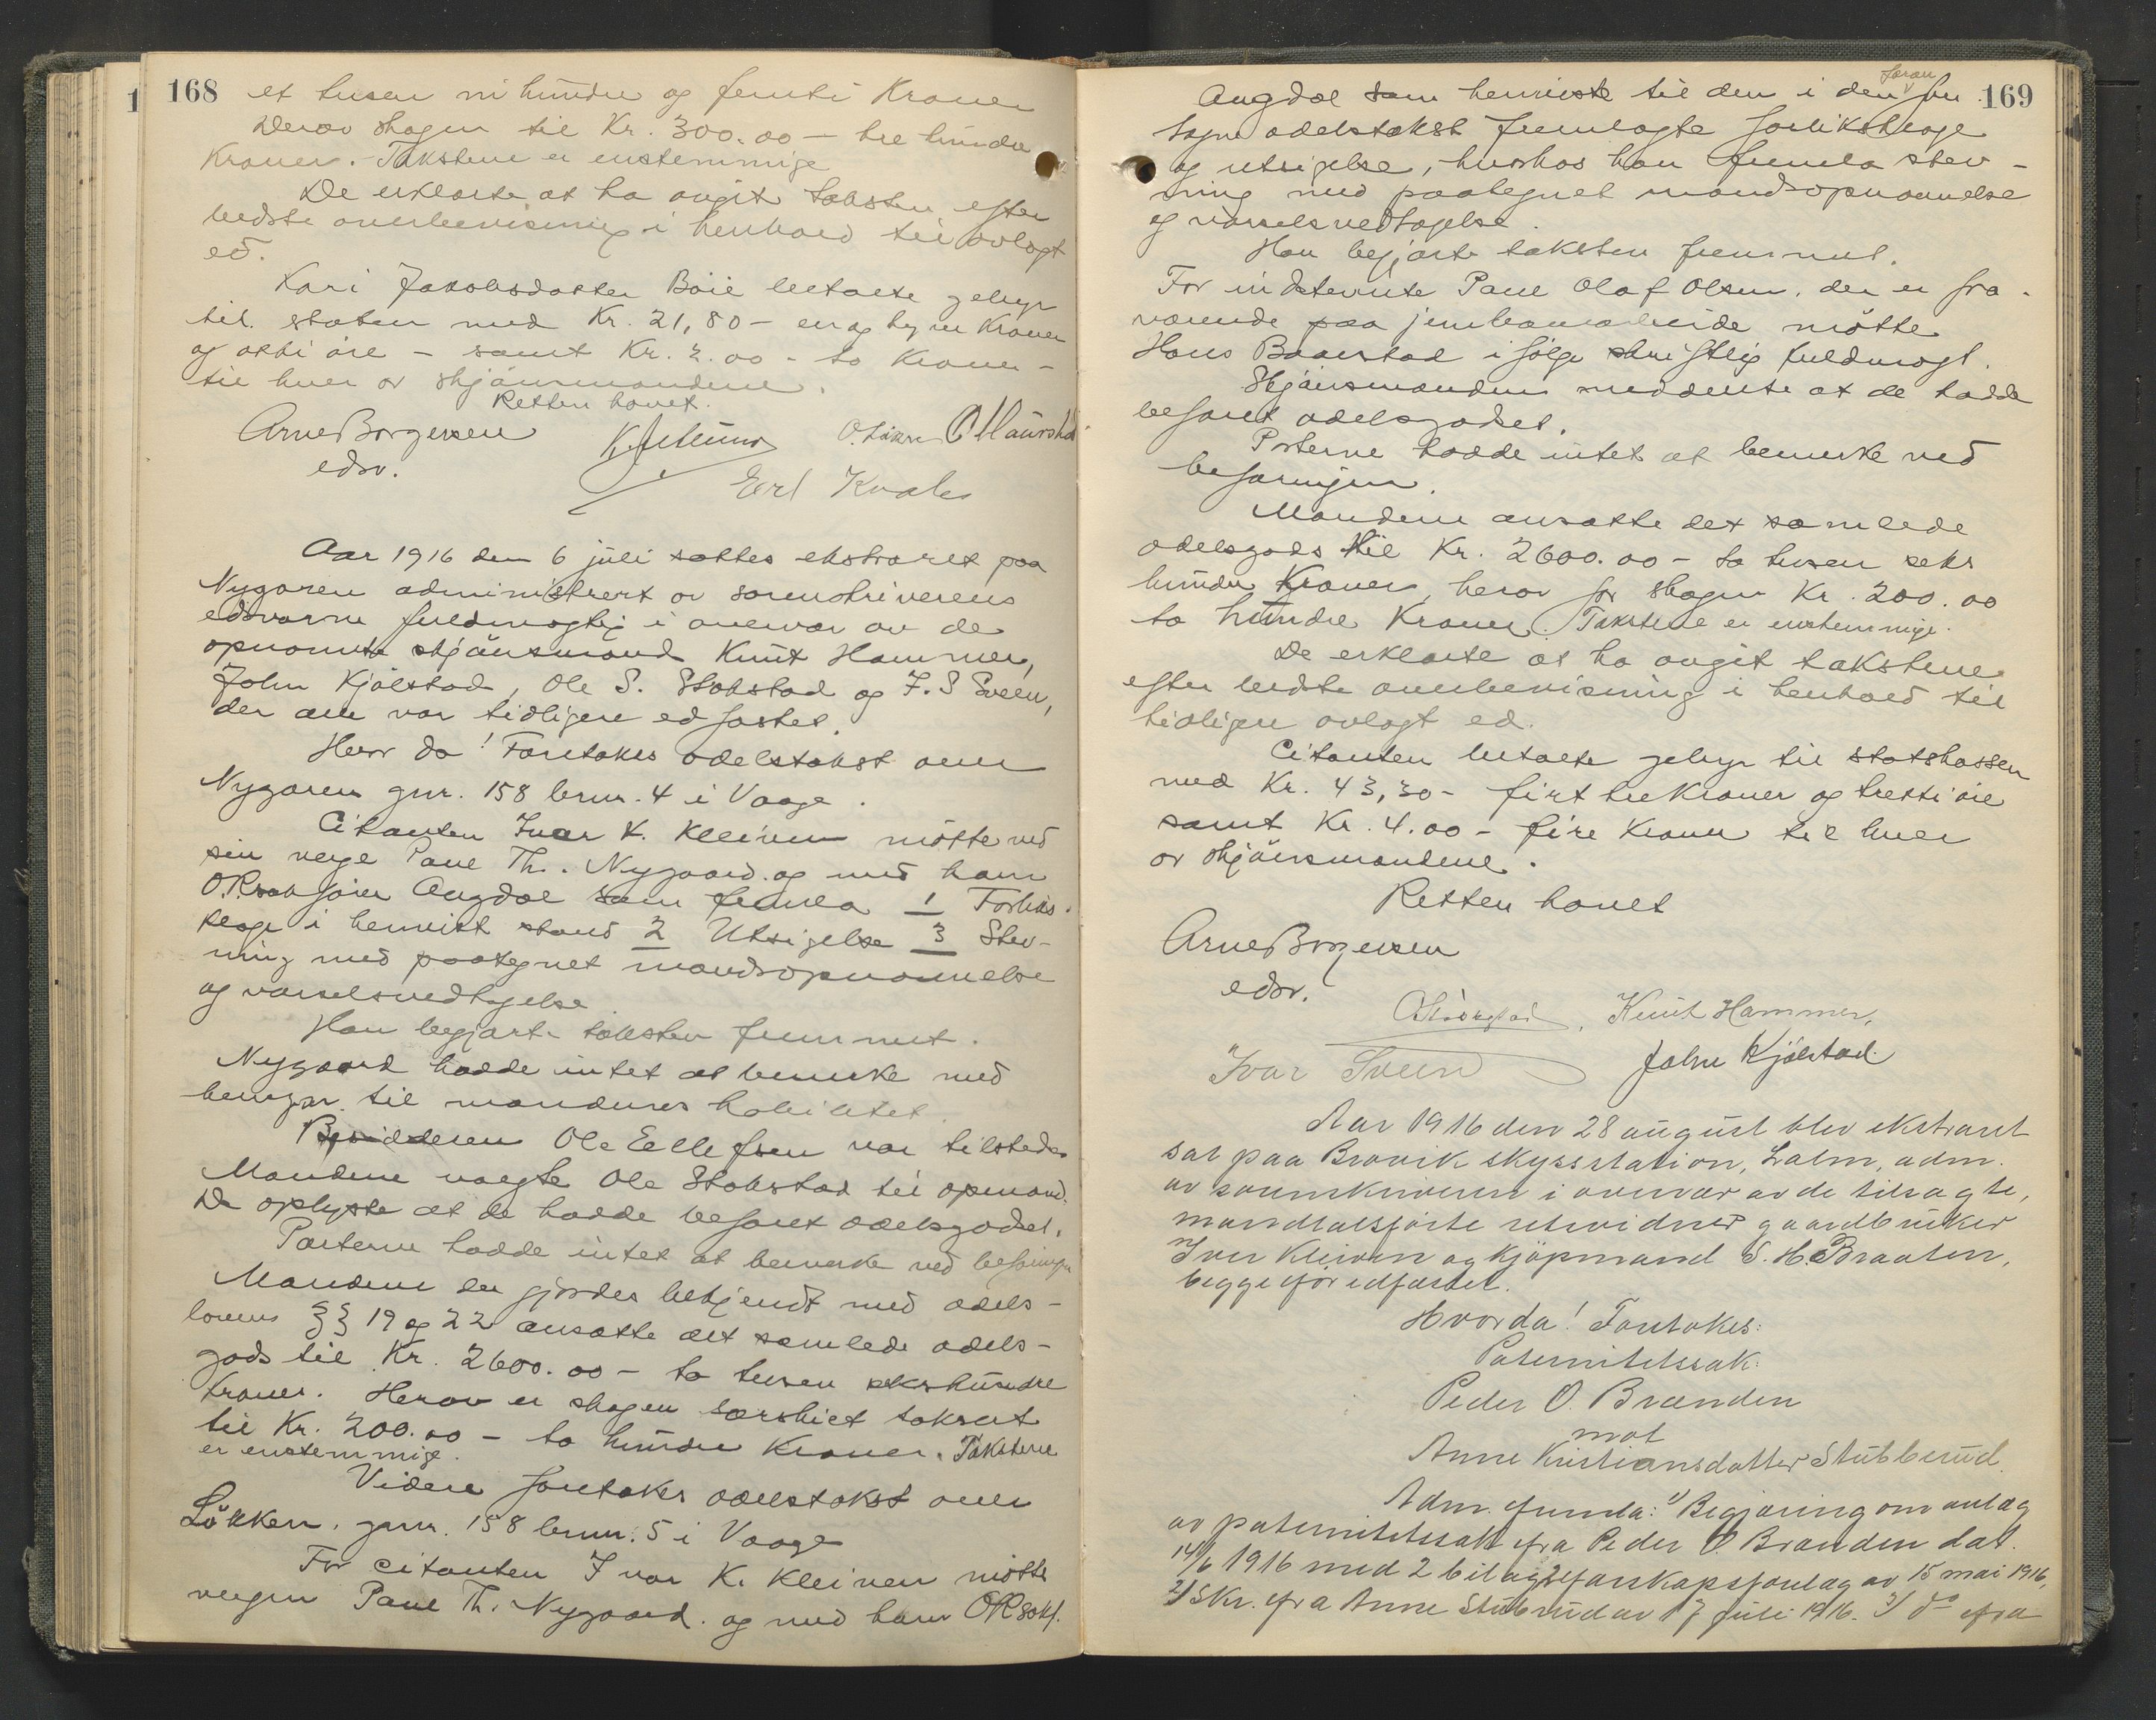 168
et tusen ni hundre og femti Kroner
Derav skogen til Kr. 300.00 – tre hundre
Kroner. – Takstene er enstemmige
De erklærte at ha avgit taksten efter
bedste overbevisning i henhold til avlagt
ed.
Kari Jakobsdatter Böie betalte gebyr
til staten med Kr. 21,80 – en og tyve Kroner
og otti öre – samt Kr. 2.00 – to Kroner –
til hver av skjönsmændene.
Retten hævet.
Arne Borgersen
edsv.
Erl Kvale
Aar 1916 den 6 juli sattes ekstraret paa
Nygaren administrert av sorenskriverens
edsvorne fuldmægtig i overvær av de
opnævnte skjönsmænd Knut Hammer,
John Kjölstad, Ole S. Stokstad og I. S Sveen,
der alle var tidligere edfæstet.
Hvor da! Foretokes odelstakst over
Nygaren gnr. 158 brnr. 4 i Vaage.
Citanten Ivar K. Kleiven mötte ved
sin verge Paul Th. Nygaard og med ham
O.R.sakförer Angdal som fremla 1 Forliks-
klage i henvist stand 2 Utsigelse 3 Stev-
ning med paategnet mandsopnævnelse
og varselsvedtagelse
Han begjærte taksten fremmet.
Nygaard hadde intet at bemerke med
hensyn til mændenes habilitet
Besidderen Ole Ellefsen var tilstede.
Mændene valgte Ole Stokstad til opmand.
De oplyste at de hadde befaret odelsgodset.
Parterne hadde intet at bemerke ved befaringen
Mændene der gjordes bekjendt med odels-
lovens §§ 19 og 22 ansatte det samlede odels-
gods til Kr. 2600.00 – to tusen sekshundre
kroner. Herav er skogen særskilt taksert
til Kr. 200.00 – to hundre Kroner. Takstene
er enstemmige.
Videre foretokes odelstakst over
Lökken, gnr. 158 brnr. 5 i Vaage
For citanten Ivar K. Kleiven mötte
vergen Paul Th. Nygaard og med ham ORsakf.
169
Angdal som henviste til den i den foran for
tagne odelstakst fremlagte forliksklage
og utsigelse, hvorhos han fremla stev-
ning med paategnet mandsopnævnelse
og varselsvedtagelse.
Han begjærte taksten fremmet.
For indstevnte Paul Olaf Olsen, der er fra-
værende paa jernbanearbeide mötte
Hans Baarstad ifölge skriftlig fuldmagt.
Skjönsmændene meddelte at de hadde
befaret odelsgodset.
Parterne hadde intet at bemerke ved
befaringen.
Mændene ansatte det samlede
odelsgods til Kr. 2600.00 – to tusen seks
hundre Kroner, herav for skogen Kr. 200.00
to hundre Kroner. Takstene er enstemmige.
De erklærte at ha avgit takstene
efter bedste overbevisning i henhold til
tidligere avlagt ed.
Citanten betalte gebyr til statskassen
med Kr. 43,30 – firti tre Kroner og tretti öre
samt Kr. 4.00 – fire Kroner til hver
av skjönsmændene.
Retten hævet
Arne Borgersen
edsv.
Knut Hammer,
Ivar Sveen
John Kjölstad
Aar 1916 den 28 august blev ekstraret
sat paa Brovik skysstation, Lalm, adm.
av sorenskriveren i overvær av de tilsagte,
mandtalsförte retsvidner gaardbruker
Iver Kleiven og kjöpmand S. H. Braaten,
begge för edfæstet.
Hvorda! Foretokes:
Paternitetssak:
Peder O. Brænden
mot
Anne Kristiansdatter Stubberud.
Adm. fremla: 1) Begjæring om anlæg
av paternitetssak fra Peder O. Brænden dat.
14/6 1916 med 2 bilag, farskapsforelæg av 15 mai 1916,
2) Skr. fra Anne Stubrud av 17 juli 1916. 3) do fra